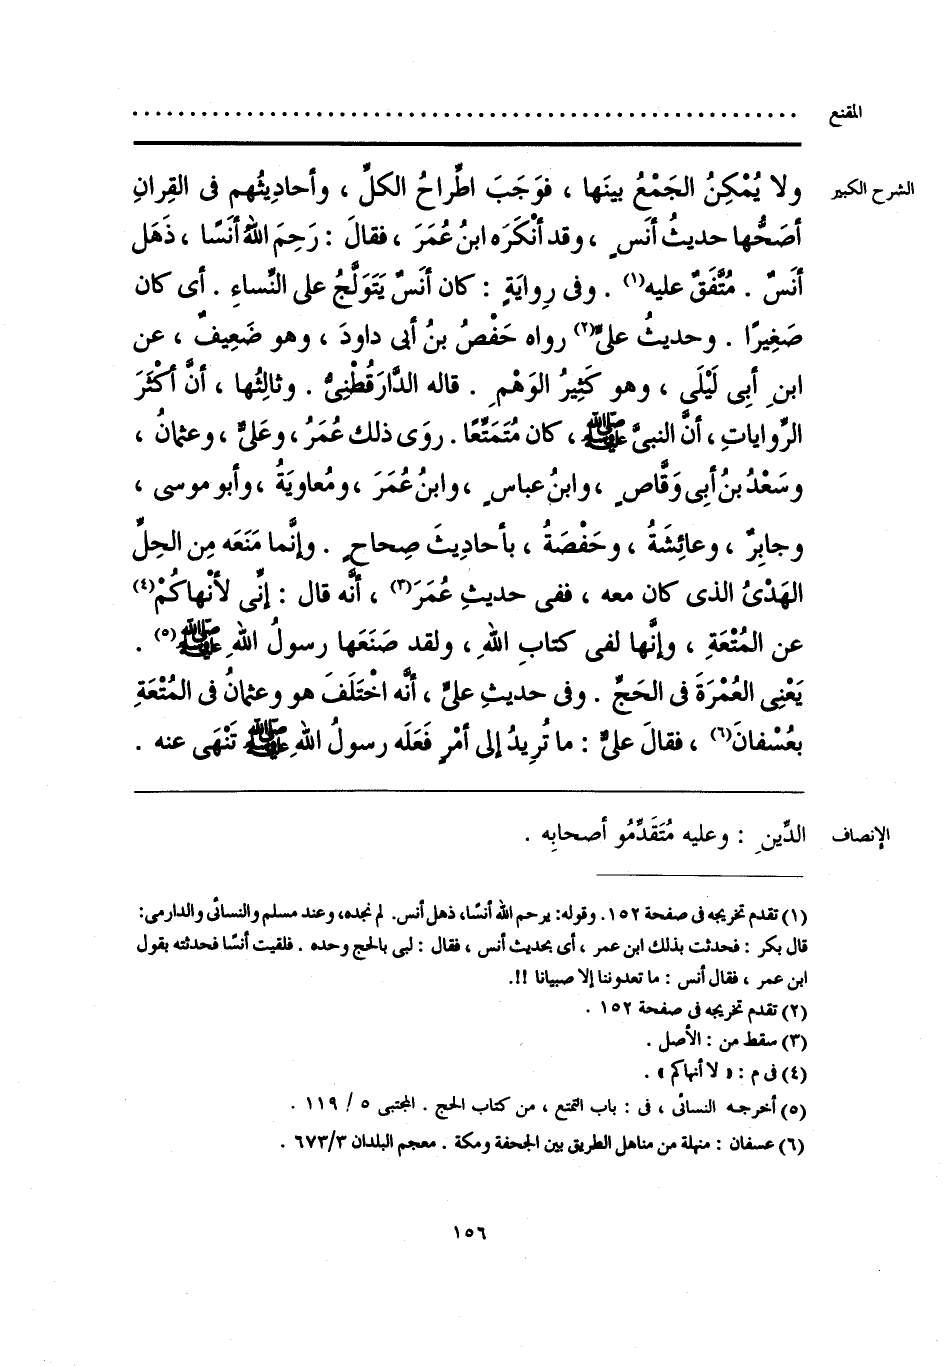 المقنع ................................................
الشرح الكبير ولا يُمْكِنُ الجَمْعُ بينَها ، فوَجَبَ اطِّراحُ الكلِّ ، وأحاديثُهم فى القِرانِ
أصَحُّها حديثُ أنَسٍ ، وقد أنْكَرَه ابنُ عُمَرَ ، فقالَ : رَحِمَ اللهُ أنَسًا ، ذَهَل
أنَسٌ . مُتَّفَقٌ عليه(١) . وفى رِوايَةٍ : كان أنَسٌ يَتَوَلَّجُ على النِّساءِ . أى كان
صَغِيرًا . وحديثُ علىٍّ(٢) رواه حَفْصُ بنُ أبى داودَ ، وهو ضَعِيفٌ ، عن
ابنِ أبِى لَيْلَى ، وهو كَثِيرُ الوَهْمِ . قاله الدَّارَقُطْنِىُّ . وثالِثُها ، أنَّ أكْثَرَ
الرِّواياتِ ، أنَّ النبىَّ ﷺ ، كان مُتَمَتِّعًا . روَى ذلك عُمَرُ ، وعَلىٌّ ، وعثمانُ ،
وسَعْدُ بنُ أبِى وَقَّاصٍ ، وابنُ عباسٍ ، وابنُ عُمَرَ ، ومُعاوِيَةُ ، وأبو موسى ،
وجابِرٌ ، وعائِشَةُ ، وحَفْصَةُ ، بأحادِيثَ صِحاحٍ . وإنَّما مَنَعَه مِن الحِلِّ
الهَدْىُ الذى كان معه ، ففى حديثِ عُمَرَ(٣) ، أنَّه قال : إنِّى لأنْهاكُمْ(٤)
عن المُتْعَةِ ، وإنَّها لفى كتابِ اللهِ ، ولقد صَنَعَها رسولُ اللهِ ﷺ(٥) .
يَعْنِى العُمْرَةَ فى الحَجِّ . وفى حديثِ علىٍّ ، أنَّه اخْتَلَفَ هو وعثمانُ فى المُتْعَةِ
بعُسْفانَ(٦) ، فقالَ علىٌّ : ما تُرِيدُ إلى أمْرٍ فَعَلَه رسولُ اللهِ ﷺ تَنْهَى عنه .
الإنصاف الدِّينِ : وعليه مُتَقَدِّمُو أصحابِه .
(١) تقدم تخريجه فى صفحة ١٥٢. وقوله: يرحم الله أنسًا، ذهل أنس. لم نجده، وعند مسلم والنسائى والدارمى:
قال بكر : فحدثت بذلك ابن عمر ، أى بحديث أنس ، فقال : لبى بالحج وحده . فلقيت أنسًا فحدثته بقول
ابن عمر ، فقال أنس : ما تعدوننا إلا صبيانا !!.
(٢) تقدم تخريجه فى صفحة ١٥٢ .
(٣) سقط من : الأصل .
(٤) فى م : « لا أنهاكم » .
(٥) أخرجه النسائى ، فى : باب التمتع ، من كتاب الحج . المجتبى ٥ / ١١٩ .
(٦) عسفان : منهلة من مناهل الطريق بين الجحفة ومكة . معجم البلدان ٦٧٣/٣ .
١٥٦